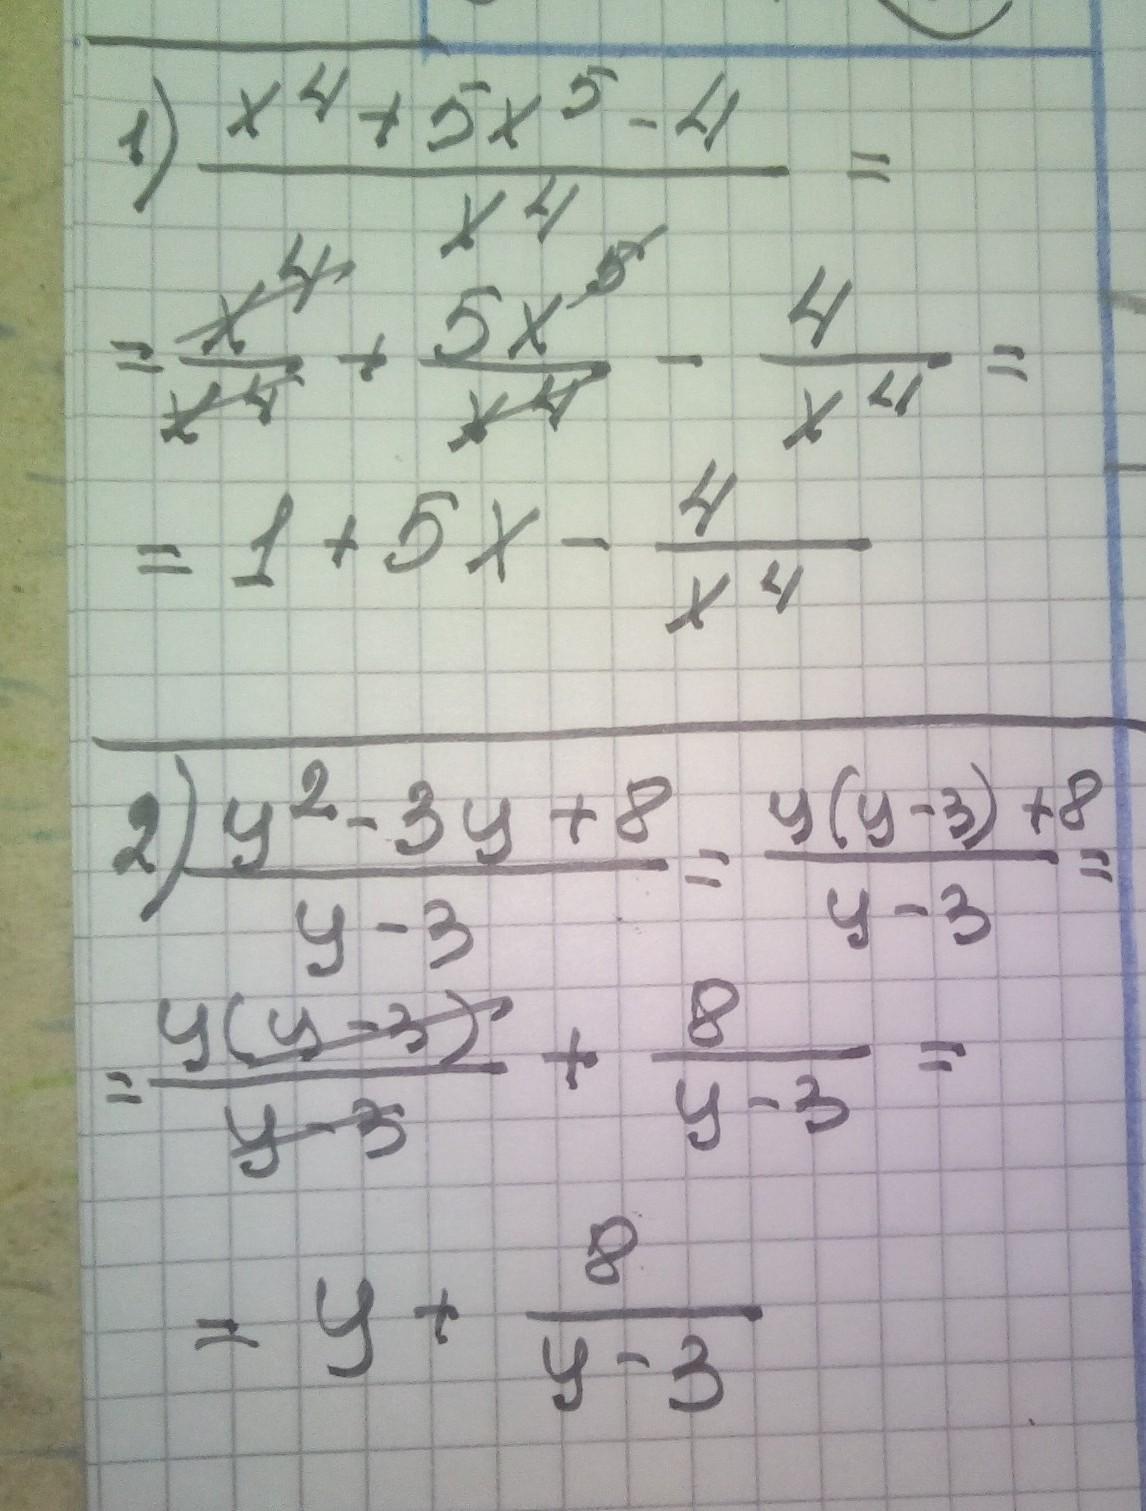 1) (x^4 + 5x^5 - 4)/(x^4) =
= x^4/x^4 + 5x^5/x^4 - 4/x^4 =
= 1 + 5x - 4/x^4
2) (y^2 - 3y + 8)/(y - 3) = (y(y - 3) + 8)/(y - 3) =
= y(y - 3)/(y - 3) + 8/(y - 3) =
= y + 8/(y - 3)